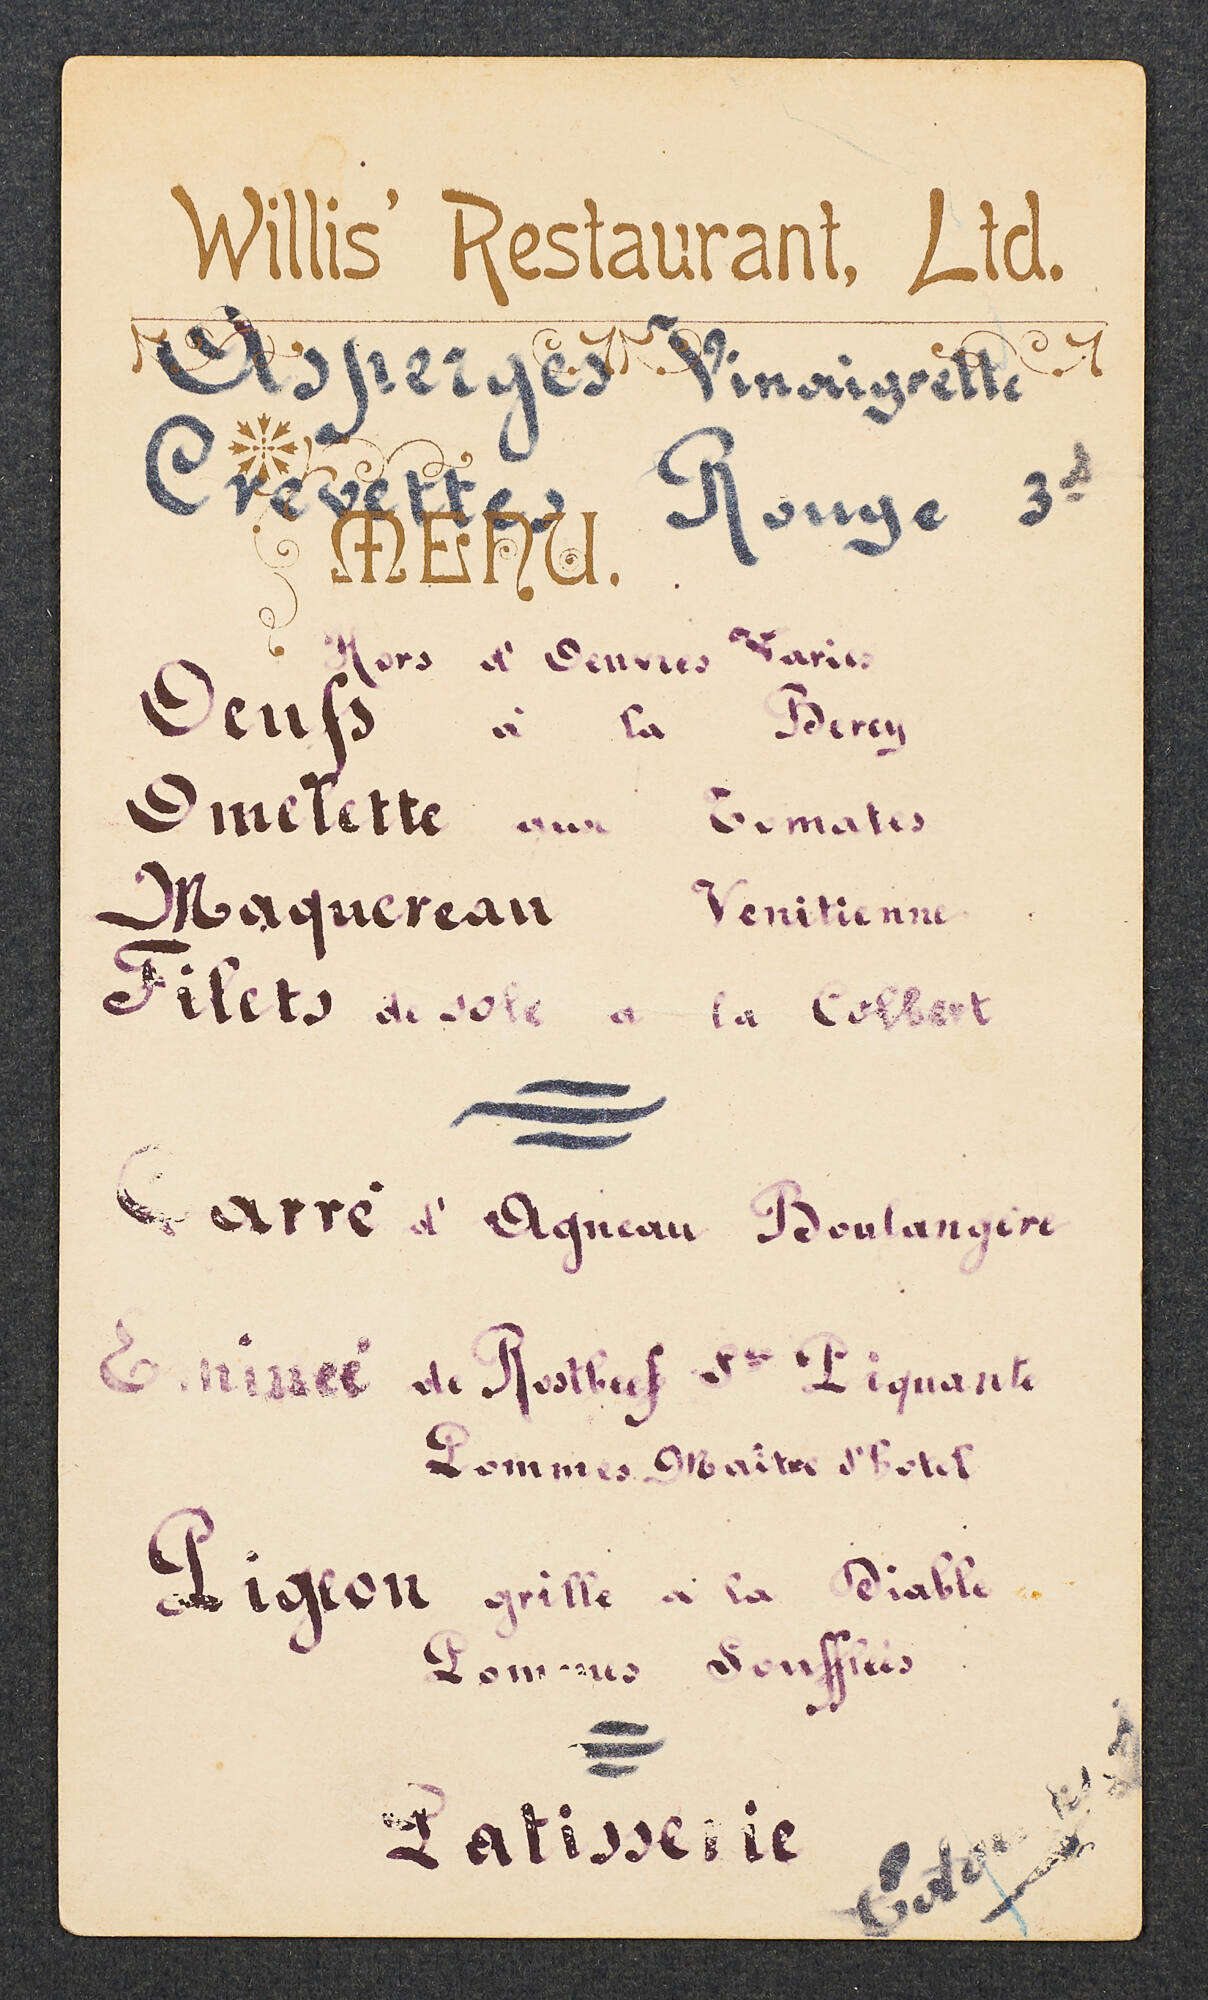 Willis' Restaurant, Ltd.
Asperges Vinaigrette
Crevettes Rouge 3d
MENU.
Hors d'Oeuvres Varies
Oeufs à la Bercy
Omelette aux Tomates
Maquereau Venitienne
Filets de sole a la Colbert
Carré d'Agneau Boulangère
Emincé de Rostbeef Sce Piquante
Pommes Maître d'hotel
Pigeon grille a la Diable
Pommes Soufflées
Patisserie